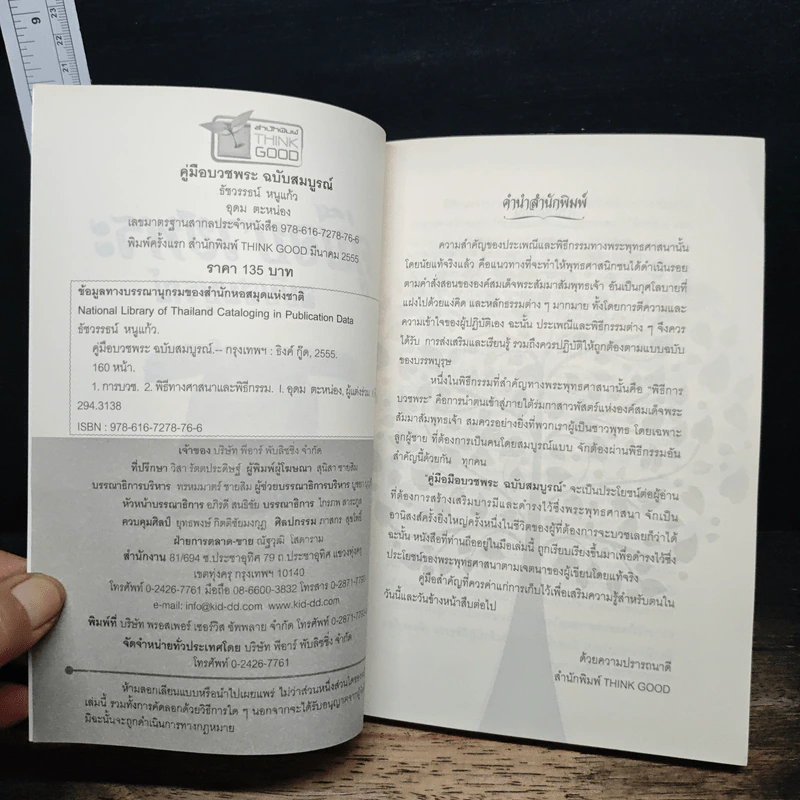 9
23
22
21
สำนักพิมพ์
THINK
GOOD
คู่มือบวชพระ ฉบับสมบูรณ์
ธัชวรรธน์ หนูแก้ว
อุดม ตะหน่อง
เลขมาตรฐานสากลประจำหนังสือ 978-616-7278-76-6
พิมพ์ครั้งแรก สำนักพิมพ์ THINK GOOD มีนาคม 2555
ราคา 135 บาท
ข้อมูลทางบรรณานุกรมของสำนักหอสมุดแห่งชาติ
National Library of Thailand Cataloging in Publication Data
ธัชวรรธน์ หนูแก้ว.
คู่มือบวชพระ ฉบับสมบูรณ์.-- กรุงเทพฯ : ธิงค์ กู๊ด, 2555.
160 หน้า.
1. การบวช. 2. พิธีทางศาสนาและพิธีกรรม. I. อุดม ตะหน่อง,ผู้แต่งร่วม
294.3138
ISBN : 978-616-7278-76-6
เจ้าของ บริษัท พีอาร์ พับลิชชิ่ง จำกัด
ที่ปรึกษา วิสา รัตตประดิษฐ์ ผู้พิมพ์ผู้โฆษณา สุนิสา ชายสิม
บรรณาธิการบริหาร ทรหมมาตร์ ชายสิม ผู้ช่วยบรรณาธิการบริหาร
หัวหน้าบรรณาธิการ อภิรดี สนธิชัย บรรณาธิการ ไกรภพ
ควบคุมศิลป์ ยุทธพงษ์ กิตติชัยมงกุฎ ศิลปกรรม ภาสกร
ฝ่ายการตลาด-ขาย ณัฐวุฒิ โสดาราม
สำนักงาน 81/694 ซ.ประชาอุทิศ 79 ถ.ประชาอุทิศ แขวงทุ่งครุ
เขตทุ่งครุ กรุงเทพฯ 10140
โทรศัพท์ 0-2426-7761 มือถือ 08-6600-3832 โทรสาร
e-mail: info@kid-dd.com www.kid-dd.com
พิมพ์ที่ บริษัท พรอสเพอร์ เซอร์วิส ซัพพลาย จำกัด โทรศัพท์
จัดจำหน่ายทั่วประเทศโดย บริษัท พีอาร์ พับลิชชิ่ง จำกัด
โทรศัพท์ 0-2426-7761
ห้ามลอกเลียนแบบหรือนำไปเผยแพร่ ไม่ว่าส่วนหนึ่งส่วนใด
เล่มนี้ รวมทั้งการคัดลอกด้วยวิธีการใด ๆ นอกจากจะได้รับอนุญาต
มิฉะนั้นจะถูกดำเนินการทางกฎหมาย
คำนำสำนักพิมพ์
ความสำคัญของประเพณีและพิธีกรรมทางพระพุทธศาสนานั้น
โดยนัยแท้จริงแล้ว คือแนวทางที่จะทำให้พุทธศาสนิกชนได้ดำเนินรอย
ตามคำสั่งสอนขององค์สมเด็จพระสัมมาสัมพุทธเจ้า อันเป็นกุศโลบายที่
แฝงไปด้วยแง่คิด และหลักธรรมต่าง ๆ มากมาย ทั้งโดยการตีความและ
ความเข้าใจของผู้ปฏิบัติเอง ฉะนั้น ประเพณีและพิธีกรรมต่าง ๆ จึงควร
ได้รับ การส่งเสริมและเรียนรู้ รวมถึงควรปฏิบัติให้ถูกต้องตามแบบฉบับ
ของบรรพบุรุษ
หนึ่งในพิธีกรรมที่สำคัญทางพระพุทธศาสนานั้นคือ "พิธีการ
บวชพระ" คือการนำตนเข้าสู่ภายใต้ร่มกาสาวพัสตร์แห่งองค์สมเด็จพระ
สัมมาสัมพุทธเจ้า สมควรอย่างยิ่งที่พวกเราผู้เป็นชาวพุทธ โดยเฉพาะ
ลูกผู้ชาย ที่ต้องการเป็นคนโดยสมบูรณ์แบบ จักต้องผ่านพิธีกรรมอัน
สำคัญนี้ด้วยกัน ทุกคน
"คู่มือมือบวชพระ ฉบับสมบูรณ์" จะเป็นประโยชน์ต่อผู้อ่าน
ที่ต้องการสร้างเสริมบารมีและดำรงไว้ซึ่งพระพุทธศาสนา จักเป็น
อานิสงส์ครั้งยิ่งใหญ่ครั้งหนึ่งในชีวิตของผู้ที่ต้องการจะบวชเลยก็ว่าได้
ฉะนั้น หนังสือที่ท่านถืออยู่ในมือเล่มนี้ ถูกเรียบเรียงขึ้นมาเพื่อดำรงไว้ซึ่ง
ประโยชน์ของพระพุทธศาสนาตามเจตนาของผู้เขียนโดยแท้จริง
คู่มือสำคัญที่ควรค่าแก่การเก็บไว้เพื่อเสริมความรู้สำหรับตนใน
วันนี้และวันข้างหน้าสืบต่อไป
ด้วยความปรารถนาดี
สำนักพิมพ์ THINK GOOD